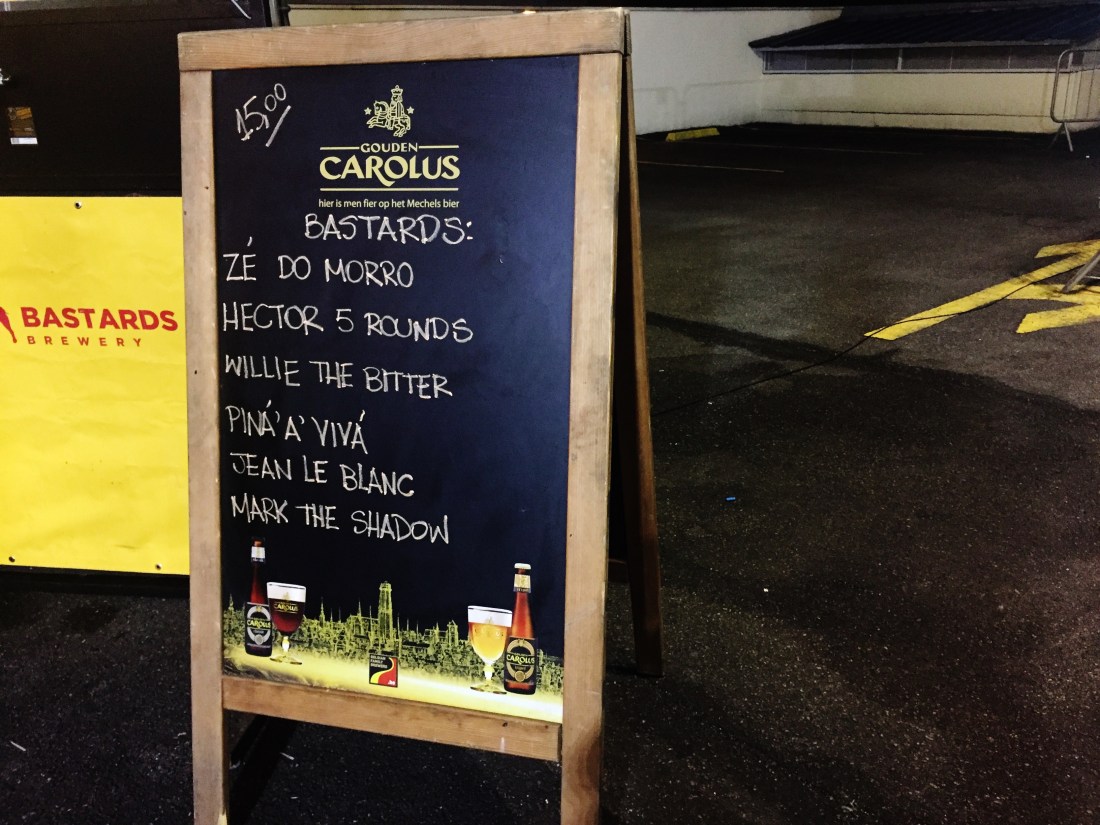 15,00
GOUDEN
CAROLUS
hier is men fier op het Mechels bier
BASTARDS:
ZÉ DO MORRO
HECTOR 5 ROUNDS
WILLIE THE BITTER
PINÁ'A'VIVÁ
JEAN LE BLANC
MARK THE SHADOW
BASTARDS
BREWERY
CAROLUS
CAROLUS
CAROLUS